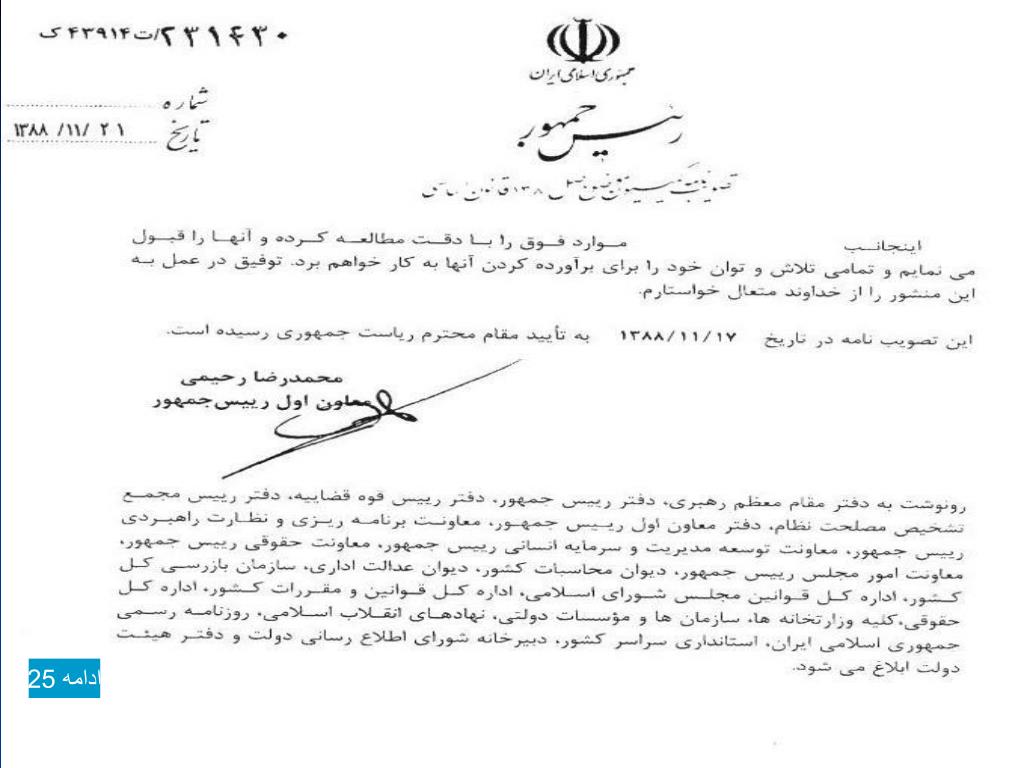 ۲۳۱۴۳۰/ت۴۳۹۱۴ک
جمهوری اسلامی ایران
رئیس جمهور
شماره
تاریخ ۱۳۸۸/۱۱/۲۱
تصویب نامه کمیسیون موضوع اصل ۱۳۸ قانون اساسی
اینجانب موارد فوق را با دقت مطالعه کرده و آنها را قبول
می نمایم و تمامی تلاش و توان خود را برای برآورده کردن آنها به کار خواهم برد. توفیق در عمل به
این منشور را از خداوند متعال خواستارم.
این تصویب نامه در تاریخ ۱۳۸۸/۱۱/۱۷ به تأیید مقام محترم ریاست جمهوری رسیده است.
محمدرضا رحیمی
معاون اول رییس‌جمهور
رونوشت به دفتر مقام معظم رهبری، دفتر رییس جمهور، دفتر رییس قوه قضاییه، دفتر رییس مجمع
تشخیص مصلحت نظام، دفتر معاون اول رییس جمهور، معاونت برنامه ریزی و نظارت راهبردی
رییس جمهور، معاونت توسعه مدیریت و سرمایه انسانی رییس جمهور، معاونت حقوقی رییس جمهور،
معاونت امور مجلس رییس جمهور، دیوان محاسبات کشور، دیوان عدالت اداری، سازمان بازرسی کل
کشور، اداره کل قوانین مجلس شورای اسلامی، اداره کل قوانین و مقررات کشور، اداره کل
حقوقی،کلیه وزارتخانه ها، سازمان ها و مؤسسات دولتی، نهادهای انقلاب اسلامی، روزنامه رسمی
جمهوری اسلامی ایران، استانداری سراسر کشور، دبیرخانه شورای اطلاع رسانی دولت و دفتر هیئت
دولت ابلاغ می شود.
ادامه 25